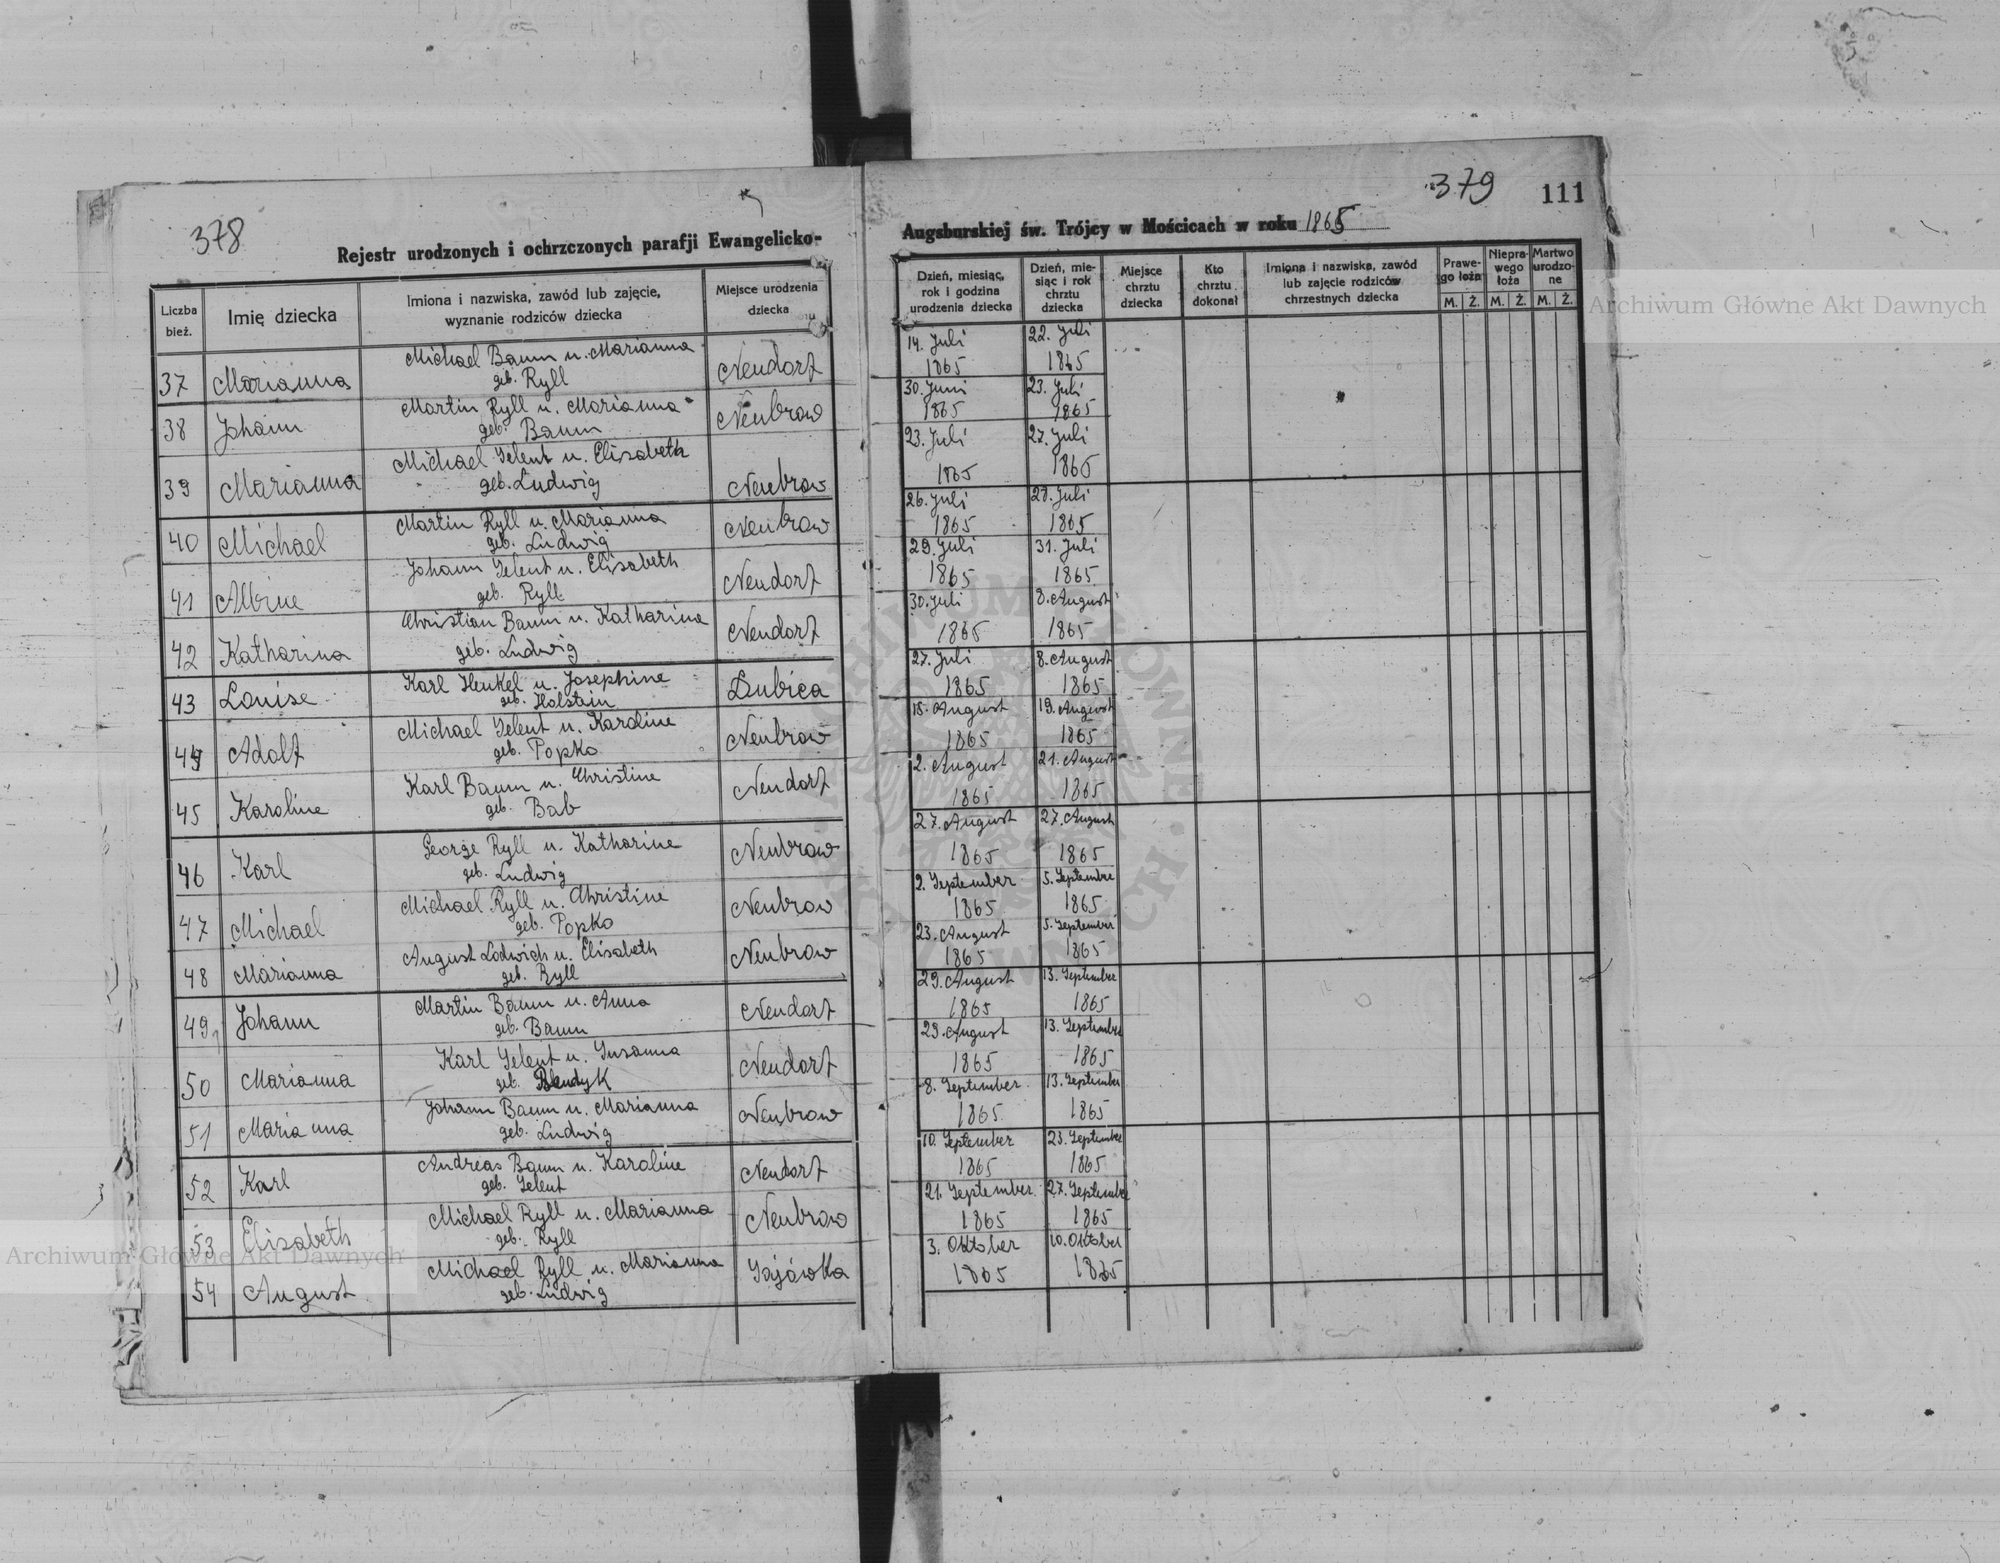 378
Rejestr urodzonych i ochrzczonych parafji Ewangelicko-
Liczba bież.
Imię dziecka
Imiona i nazwiska, zawód lub zajęcie, wyznanie rodziców dziecka
Miejsce urodzenia dziecka
37 Marianna Michael Baum u. Marianna geb. Ryll Neudorf
38 Johann Martin Ryll u. Marianna geb. Baum Neubrow
39 Marianna Michael Selent u. Elisabeth geb. Ludwig Neubrow
40 Michael Martin Ryll u. Marianna geb. Ludwig Neubrow
41 Albine Johann Selent u. Elisabeth geb. Ryll Neudorf
42 Katharina Christian Baum u. Katharina geb. Ludwig Neudorf
43 Louise Karl Henkel u. Josephine geb. Holstein Dubica
44 Adolf Michael Selent u. Karoline geb. Popko Neubrow
45 Karoline Karl Baum u. Christine geb. Bab Neudorf
46 Karl George Ryll u. Katharine geb. Ludwig Neubrow
47 Michael Michael Ryll u. Christine geb. Popko Neubrow
48 Marianna August Lodwich u. Elisabeth geb. Ryll Neubrow
49 Johann Martin Baum u. Anna geb. Baum Neudorf
50 Marianna Karl Selent u. Susanna geb. Neudorf
51 Marianna Johann Baum u. Marianna geb. Ludwig Neubrow
52 Karl Andreas Baum u. Karoline geb. Selent Neudorf
53 Elisabeth Michael Ryll u. Marianna geb. Ryll Neubrow
54 August Michael Ryll u. Marianna geb. Ludwig Sajówka
379
111
Augsburskiej św. Trójcy w Mościcach w roku 1865
Dzień, miesiąc, rok i godzina urodzenia dziecka
Dzień, mie-
siąc i rok chrztu dziecka
Miejsce chrztu dziecka
Kto chrztu dokonał
Imiona i nazwiska, zawód lub zajęcie rodziców chrzestnych dziecka
Prawe-
go łoża
Niepra-
wego łoża
Martwo urodzo-
ne
M. Ż. M. Ż. M. Ż.
14. Juli 1865 22. Juli 1865
30. Juni 1865 23. Juli 1865
23. Juli 1865 27. Juli 1865
26. Juli 1865 28. Juli 1865
29. Juli 1865 31. Juli 1865
30. Juli 1865 8. August 1865
27. Juli 1865 8. August 1865
18. August 1865 19. August 1865
2. August 1865 21. August 1865
27. August 1865 27. August 1865
2. September 1865 5. September 1865
23. August 1865 5. September 1865
29. August 1865 13. September 1865
29. August 1865 13. September 1865
8. September 1865 13. September 1865
10. September 1865 23. September 1865
21. September 1865 27. September 1865
3. Oktober 1865 10. Oktober 1865
Archiwum Główne Akt Dawnych
Archiwum Główne Akt Dawnych